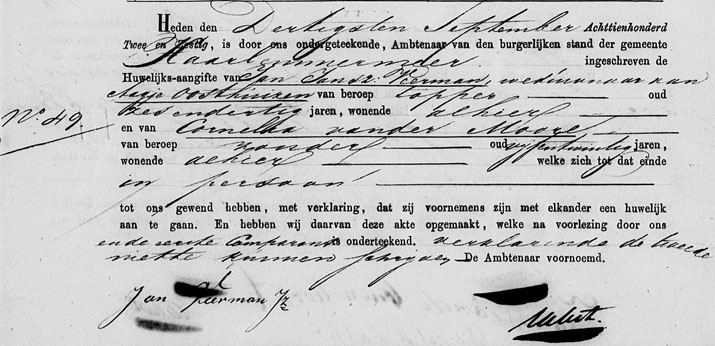 Heden den Dertigsten September Achttienhonderd
Twee en Zestig, is door ons ondergeteekende, Ambtenaar van den burgerlijken stand der gemeente
Haarlemmermeer ingeschreven de
Huwelijks-aangifte van Jan Jansz. Peerman, weduwnaar van
Aagje Oosthuizen van beroep tapper oud
Een en dertig jaren, wonende alhier
No. 49.
en van Cornelia van der Moore
van beroep zonder oud vijfentwintig jaren,
wonende alhier welke zich tot dat einde
in persoon
tot ons gewend hebben, met verklaring, dat zij voornemens zijn met elkander een huwelijk
aan te gaan. En hebben wij daarvan deze akte opgemaakt, welke na voorlezing door ons
en de eerste Comparant is onderteekend. verklarende de tweede
niet te kunnen schrijven De Ambtenaar voornoemd.
Jan Peerman Jz